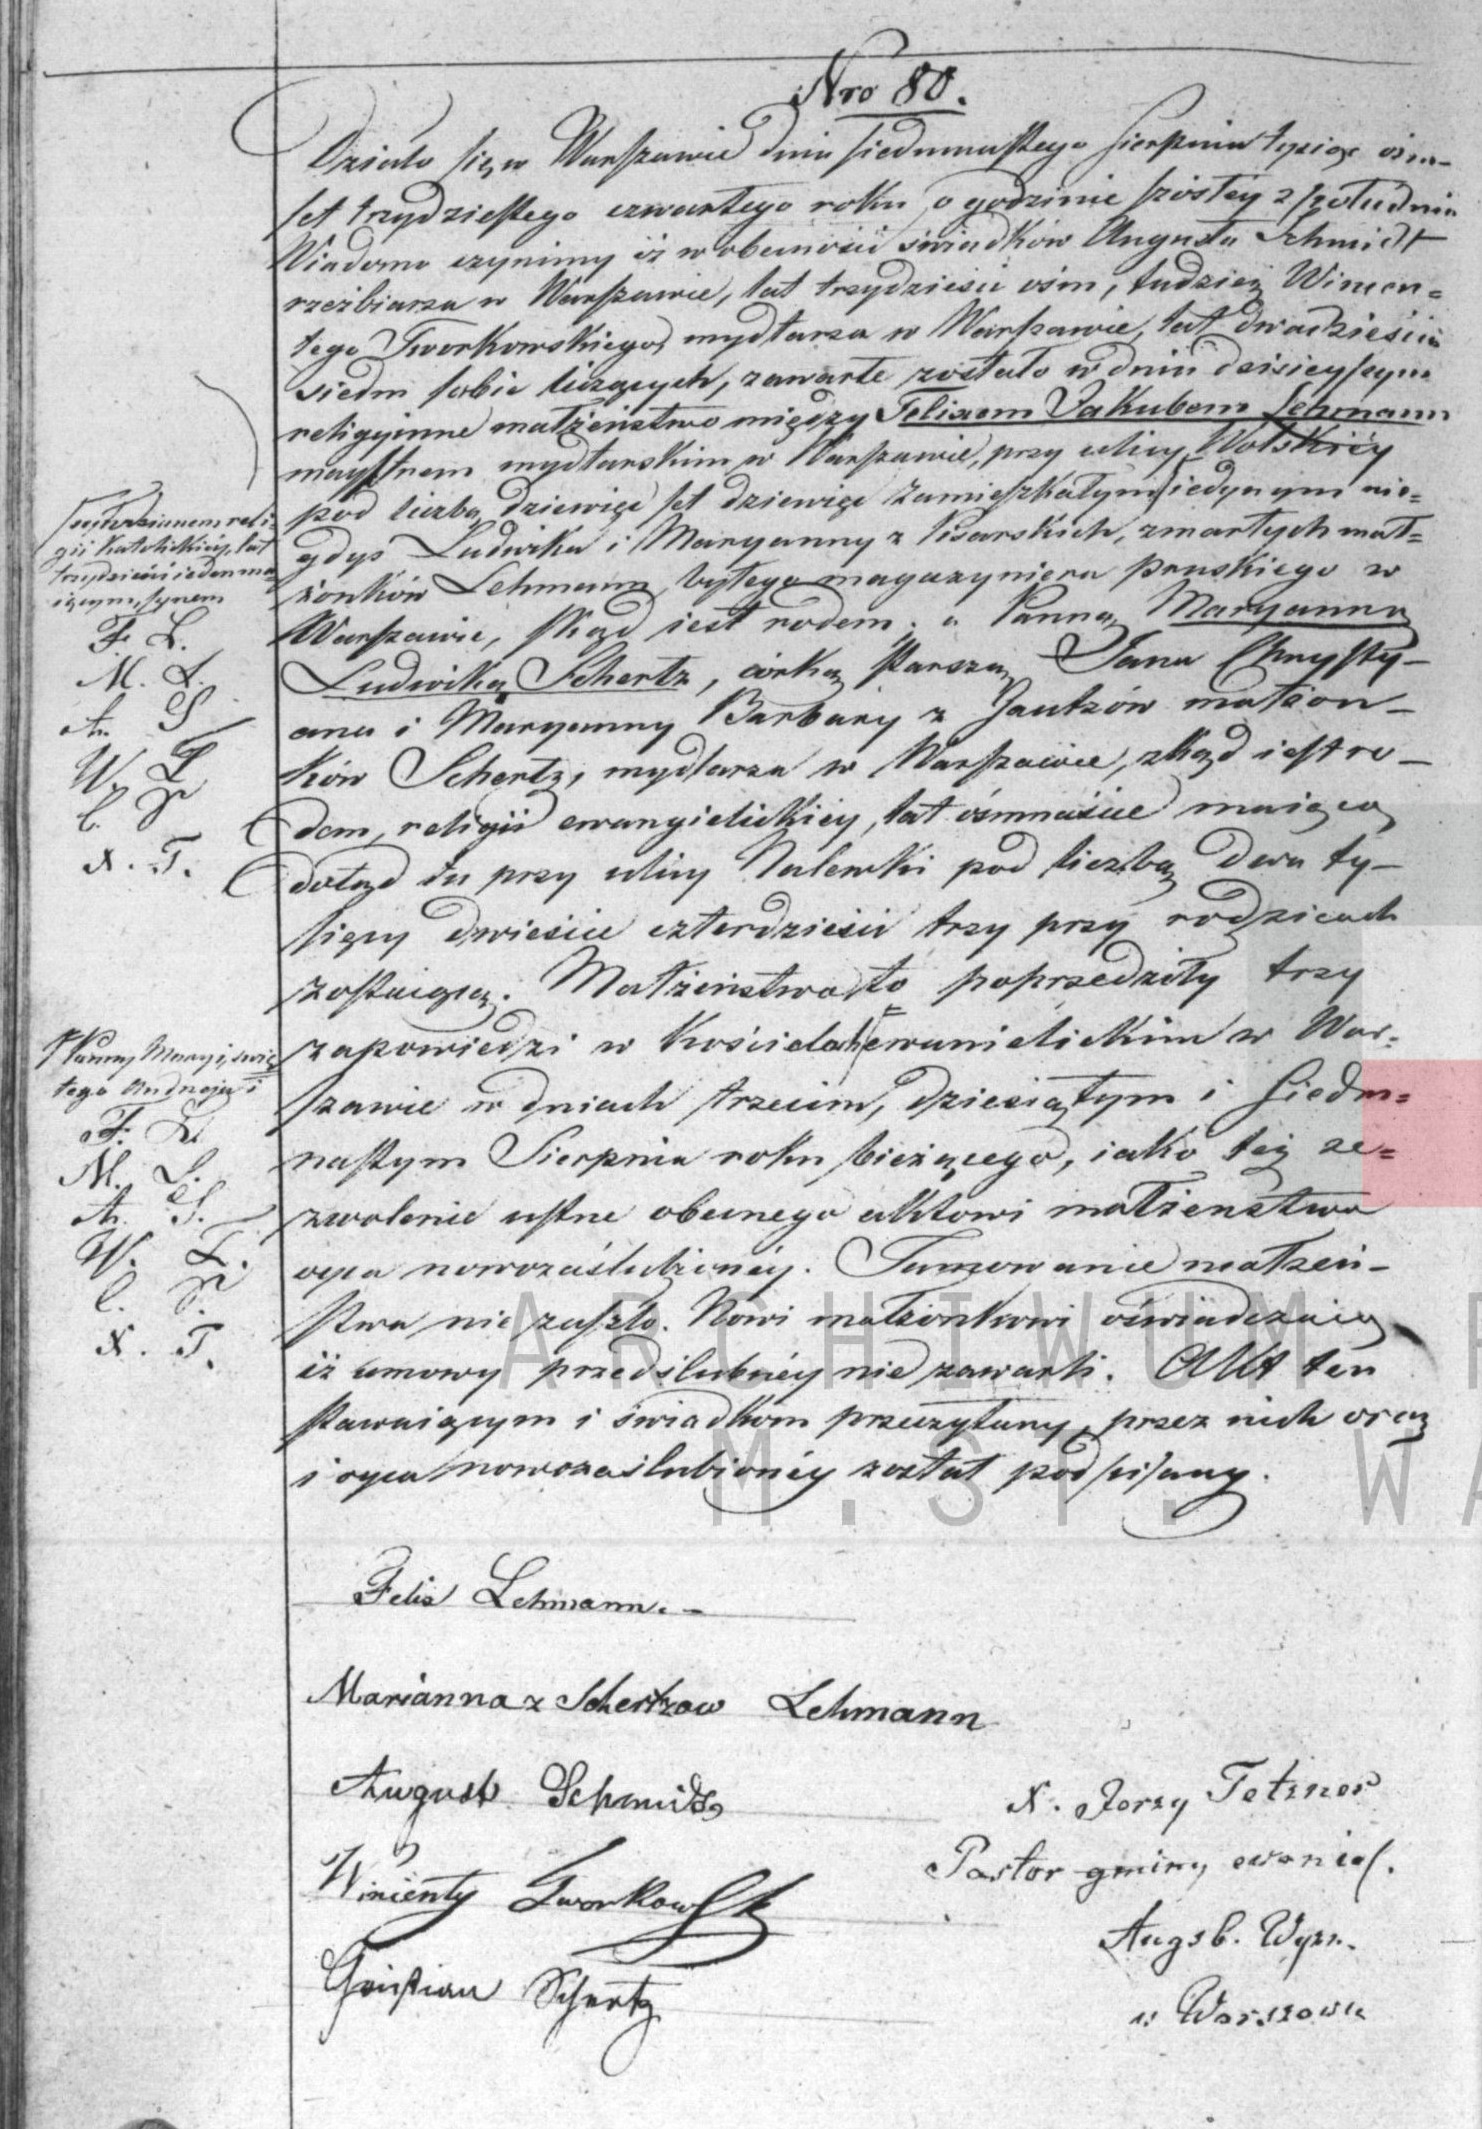 Nro 80.
Działo się w Warszawie dnia siedmnastego Sierpnia tysiąc ośm-
set trzydziestego czwartego roku o godzinie szóstey z południa
Wiadomo czynimy iż w obecności świadków Augusta Schmidt
rzeźbiarza w Warszawie, lat trzydzieści ośm, tudzież Wincen=
tego Tworkowskiego, mydlarza w Warszawie, lat dwadzieścia
siedm sobie liczących, zawarte zostało w dniu dzisieyszym
religijne małżeństwo między Felixem Jakubem Lehmann
maystrem mydlarskim w Warszawie, przy ulicy Wolskiéy
pod liczbą dziewięć set dziewięć zamieszkałym iedynym nie=
gdyś Ludwika i Maryanny z Pisarskich, zmarłych mał=
żonków Lehmann, byłego magazyniera pruskiego w
Warszawie, skąd iest rodem; a Panną Maryanną
Ludwiką Schertz, córką starszą Jana Chrysty-
ana i Maryanny Barbary z Jautzów małżon-
ków Schertz, mydlarza w Warszawie, zkąd iest ro-
dem, religii ewangielickiey, lat ośmnaście maiącą
dotąd tu przy ulicy Nalewki pod liczbą dwa ty-
siący dwieście czterdzieści trzy przy rodzicach
zostaiącą. Małżeństwo to poprzedziły trzy
zapowiedzi w Kościołach ewanielickim w War=
szawie w dniach trzecim, dziesiątym i siedm=
nastym Sierpnia roku bieżącego, iako też ze=
zwolenie ustne obecnego aktowi małżeństwa
oyca nowozaślubionéy. Tamowanie małżeń-
stwa nie zaszło. Nowi małżonkowi oświadczaią
iż umowy przedślubnéy nie zawarli. Akt ten
stawaiącym i świadkom przeczytany, przez nich oraz
i oyca nowozaślubionéy został podpisany.
religii katolickiéy, lat
trzydzieści ieden ma
iącym, synem
F. L.
M. L.
A. S.
W. T.
C. S.
X. T.
Panny Maryi, świę
tego Andrzeja i
F. L.
M. L.
A. S.
W. T.
C. S.
X. T.
Felix Lehmann.-
Marianna z Schertzow Lehmann
August Schmidt
Wincenty Tworkowski
Christian Schertz
X. Jerzy Tetzner
Pastor gminy ewaniel.
Augsb. Wyzn.
w Warszawie
ARCHIWUM P
M.ST. WA